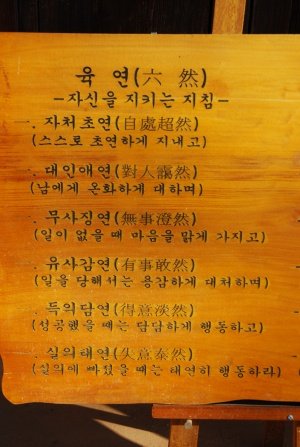 육 연(六 然)
-자신을 지키는 지침-
一. 자처초연(自處超然)
(스스로 초연하게 지내고)
. 대인애연(對人靄然)
(남에게 온화하게 대하며)
. 무사징연(無事澄然)
(일이 없을 때 마음을 맑게 가지고)
. 유사감연(有事敢然)
(일을 당해서는 용감하게 대처하며)
. 득의담연(得意淡然)
(성공했을 때는 담담하게 행동하고)
. 실의태연(失意泰然)
(실의에 빠졌을 때는 태연히 행동하라)